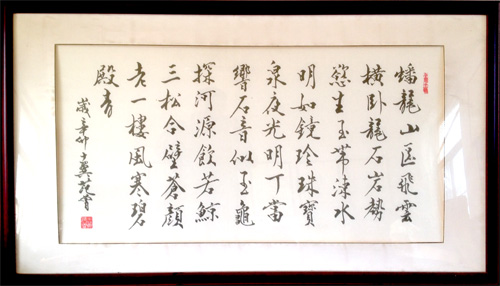 蟠龍山區飛雲
橫卧龍石岩勢
玉帶涑水
明如鏡珍珠寶
泉夜光明丁當
響石音似玉龜
探河源飲若鯨
三松合璧蒼顏
老一樓風寒碧
殿青
歲辛卯書